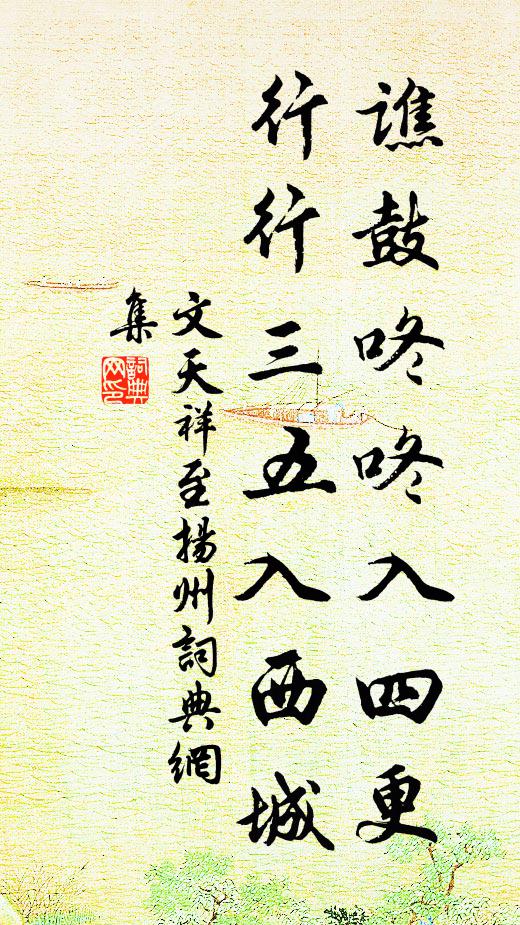 譙鼓咚咚入四更
行行三五入西城
文天祥至揚州詞典網
集
詞典
网印